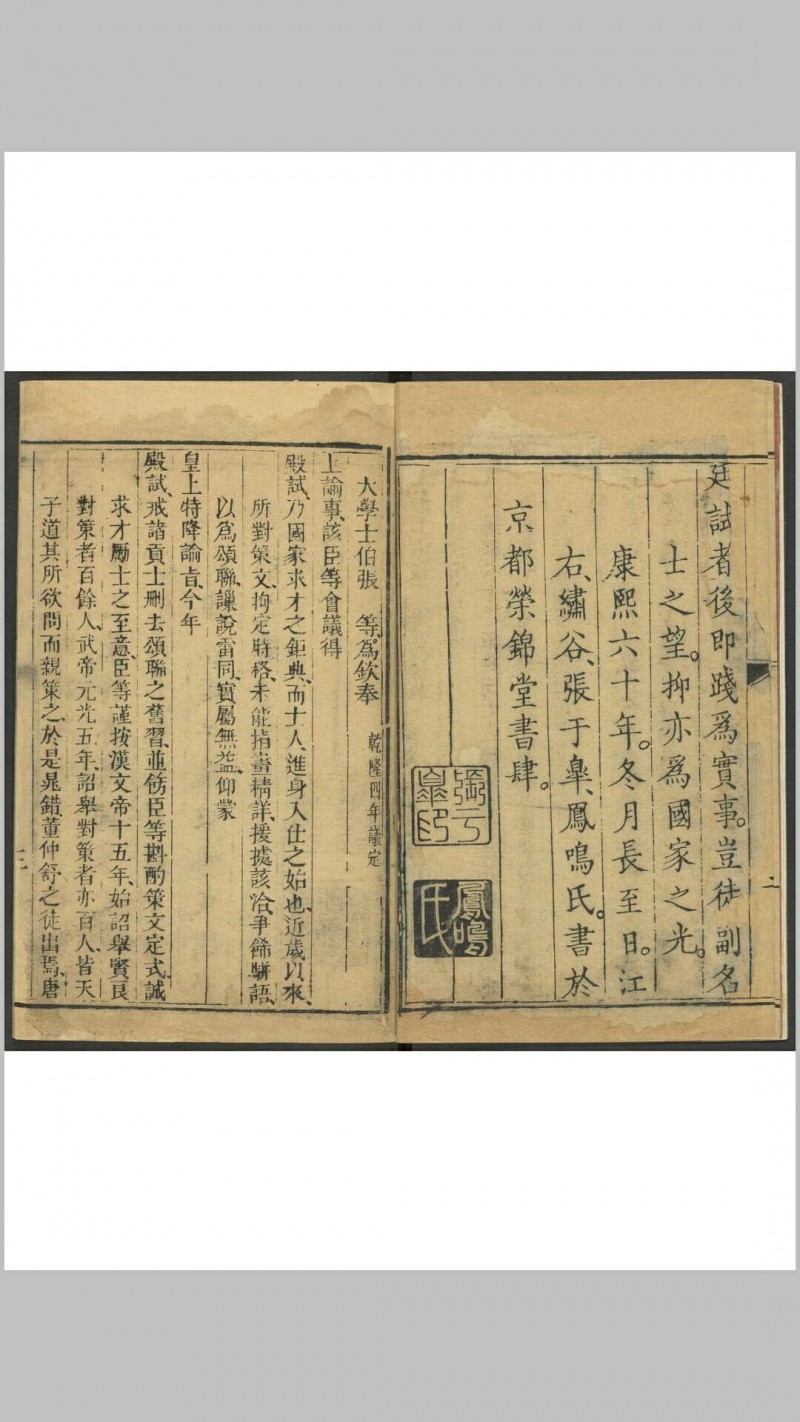 廷試者後即踐為實事。豈徒副名
士之望。抑亦為國家之光。
康熙六十年。冬月長至日。江
右、繡谷、張于臯、鳳鳴氏。書於
京都榮錦堂書肆。
張于
臯印
鳳鳴
氏
二
大學士伯張　等。為欽奉　乾隆四年議定
上諭事、該臣等會議得
殿試、乃國家求才之鉅典、而士人、進身入仕之始也、近歲以來、
所對策文、拘定時格、未能指畫精詳、援㨿該洽、爭餙騈語、
以為頌聯、讕說雷同、實屬無益、仰蒙
皇上特降諭旨、今年
殿試、戒諸貢士刪去頌聯之舊習、並飭臣等斟酌策文定式、誠
求才勵士之至意、臣等謹按漢文帝十五年、始詔舉賢良
對策者百餘人、武帝元光五年、詔舉對策者亦百人、皆天
子道其所欲問而親策之、於是晁錯、董仲舒之徒出焉、唐